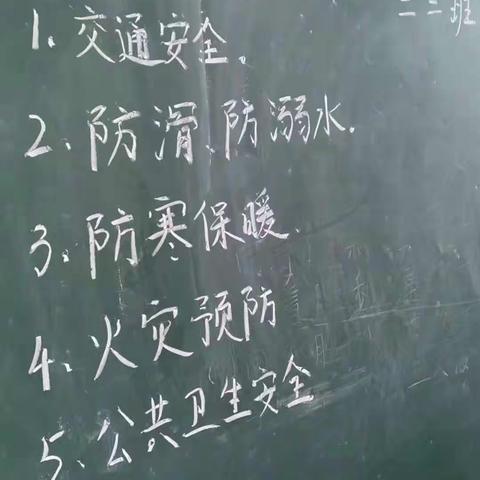 二三班
1、交通安全、
2、防滑、防溺水.
3、防寒保暖.
4、火灾预防
5、公共卫生安全